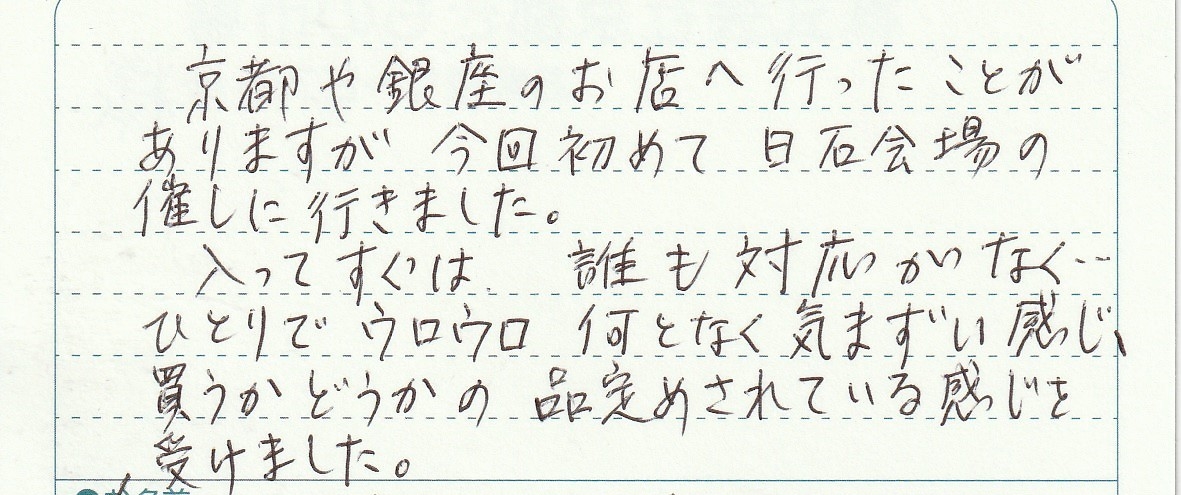 京都や銀座のお店へ行ったことが
ありますが 今回初めて 日石会場の
催しに行きました。
入ってすぐは 誰も対応がなく…
ひとりでウロウロ 何となく気まずい感じ、
買うかどうかの 品定めされている感じを
受けました。